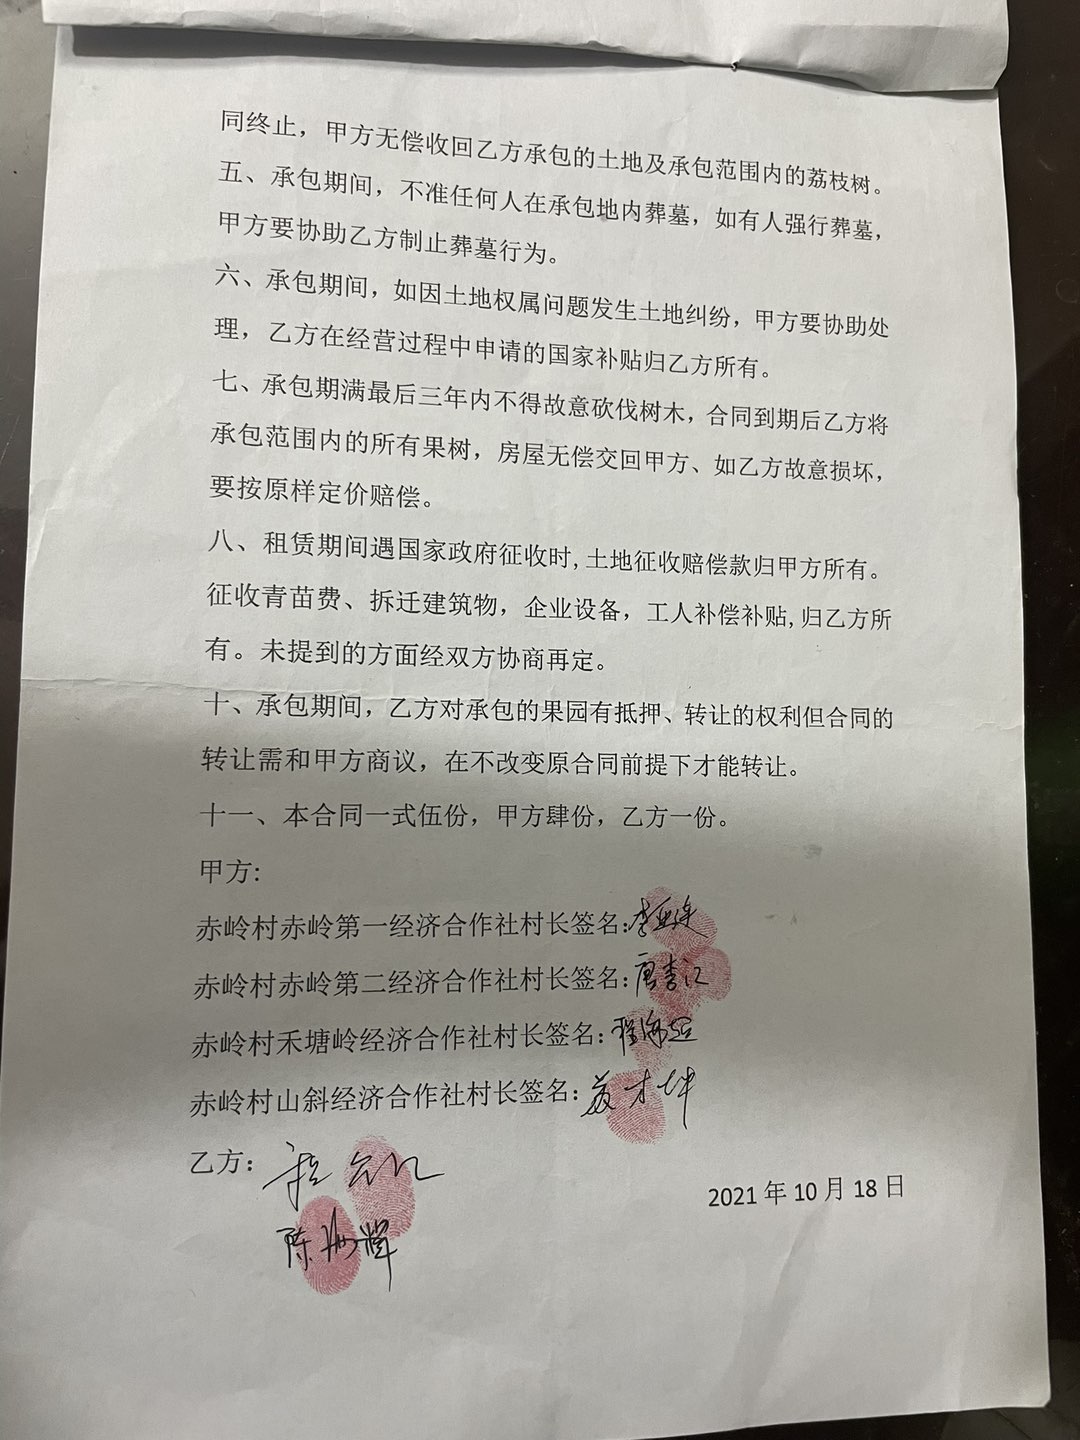 同终止，甲方无偿收回乙方承包的土地及承包范围内的荔枝树。
五、承包期间，不准任何人在承包地内葬墓，如有人强行葬墓，
甲方要协助乙方制止葬墓行为。
六、承包期间，如因土地权属问题发生土地纠纷，甲方要协助处
理，乙方在经营过程中申请的国家补贴归乙方所有。
七、承包期满最后三年内不得故意砍伐树木，合同到期后乙方将
承包范围内的所有果树，房屋无偿交回甲方、如乙方故意损坏，
要按原样定价赔偿。
八、租赁期间遇国家政府征收时,土地征收赔偿款归甲方所有。
征收青苗费、拆迁建筑物，企业设备，工人补偿补贴,归乙方所
有。未提到的方面经双方协商再定。
十、承包期间，乙方对承包的果园有抵押、转让的权利但合同的
转让需和甲方商议，在不改变原合同前提下才能转让。
十一、本合同一式伍份，甲方肆份，乙方一份。
甲方:
赤岭村赤岭第一经济合作社村长签名:
赤岭村赤岭第二经济合作社村长签名:
赤岭村禾塘岭经济合作社村长签名:
赤岭村山斜经济合作社村长签名:
乙方:
2021 年 10 月 18 日